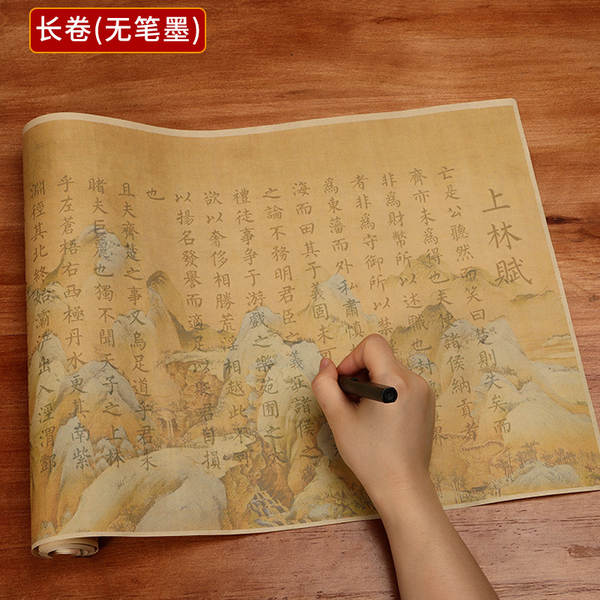 长卷(无笔墨)
上林賦
亡是公聽然而笑曰楚則失矣而
齊亦未爲得也夫使諸侯納貢者
非爲財幣所以述職也封界
者非爲守御所以禁
爲東藩而外私肅慎
海而田其于義固未可
之論不務明君臣之義正諸侯之
禮徒事爭于游戲之樂苑囿之大
欲以奢侈相勝荒淫相越此不可
以揚名發譽而適足以貶君自損
也
且夫齊楚之事又烏足道乎君未
睹夫巨麗也獨不聞天子之上林
乎左蒼梧右西極丹水更其南紫
淵徑其北終始灞滻出入涇渭酆